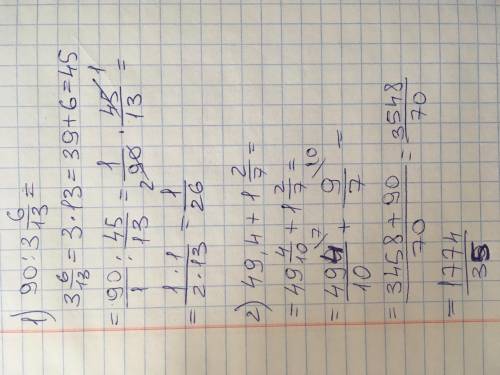 1) 90 : 3 6/13 =
3 6/13 = 3 · 13 = 39 + 6 = 45
= 90/1 : 45/13 = 1/90 2 · 45/13 1 =
1 · 1/2 · 13 = 1/26
2) 49,4 + 1 2/7 =
= 49 4/10 + 1 2/7 =
= 494/10 7 + 9/7 10 =
= 3458 + 90/70 = 3548/70
= 1774/35